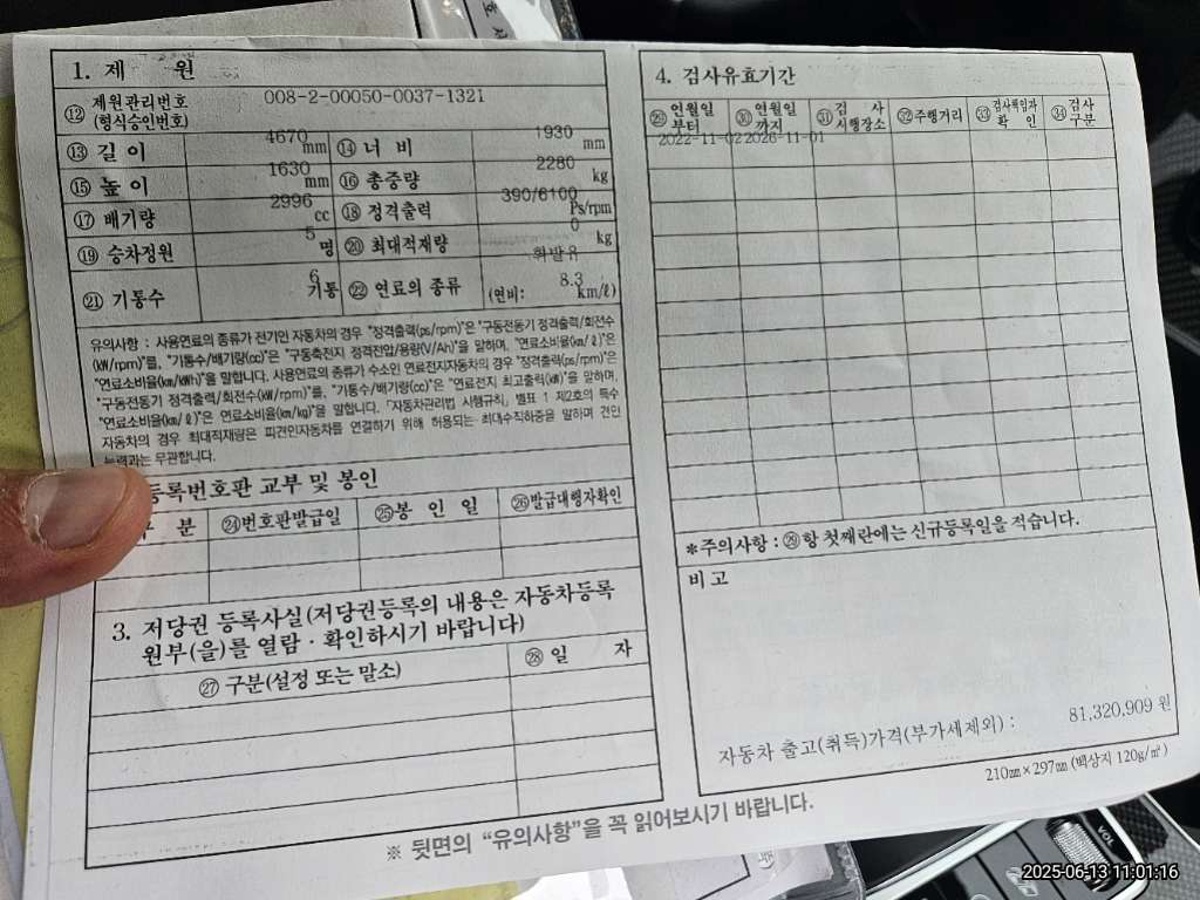 1. 제 원
⑫ 제원관리번호 (형식승인번호) 008-2-00050-0037-1321
⑬ 길 이 4670 mm ⑭ 너 비 1930 mm
⑮ 높 이 1630 mm ⑯ 총중량 2280 kg
⑰ 배기량 2996 cc ⑱ 정격출력 390/6100 Ps/rpm
⑲ 승차정원 5 명 ⑳ 최대적재량 0 kg
㉑ 기통수 6 기통 ㉒ 연료의 종류 휘발유 (연비: 8.3 km/ℓ)
유의사항 : 사용연료의 종류가 전기인 자동차의 경우 "정격출력(ps/rpm)"은 "구동전동기 정격출력/회전수
(kW/rpm)"를, "기통수/배기량(cc)"은 "구동축전지 정격전압/용량(V/Ah)"을 말하며, "연료소비율(km/ℓ)"은
"연료소비율(km/kWh)"을 말합니다. 사용연료의 종류가 수소인 연료전지자동차의 경우 "정격출력(ps/rpm)"은
"구동전동기 정격출력/회전수(kW/rpm)"를, "기통수/배기량(cc)"은 "연료전지 최고출력(kW)"을 말하며,
"연료소비율(km/ℓ)"은 연료소비율(km/kg)"을 말합니다. 「자동차관리법 시행규칙」 별표 1 제2호의 특수
자동차의 경우 최대적재량은 피견인자동차를 연결하기 위해 허용되는 최대수직하중을 말하며 견인
능력과는 무관합니다.
등록번호판 교부 및 봉인
구 분 ㉔번호판발급일 ㉕봉 인 일 ㉖발급대행자확인
3. 저당권 등록사실(저당권등록의 내용은 자동차등록
원부(을)를 열람 · 확인하시기 바랍니다)
㉗ 구분(설정 또는 말소) ㉘ 일 자
4. 검사유효기간
㉙ 연월일 부터 ㉚ 연월일 까지 ㉛ 검 사 시행장소 ㉜주행거리 ㉝ 검사책임자 확 인 ㉞ 검사 구분
2022-11-02 2026-11-01
※주의사항 : ㉙항 첫째란에는 신규등록일을 적습니다.
비 고
자동차 출고(취득)가격(부가세제외) : 81,320,909 원
210㎜×297㎜(백상지 120g/㎡)
※ 뒷면의 "유의사항"을 꼭 읽어보시기 바랍니다.
VOL
2025-06-13 11:01:16